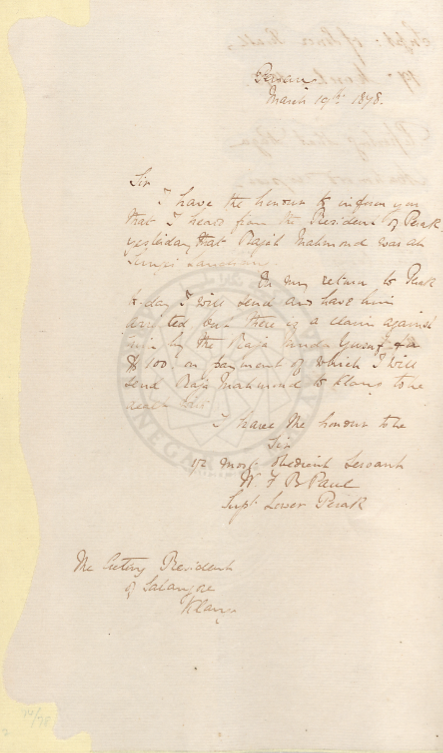 March 19th 1878.
Sir
I have the honour to inform you
that I heard from the Resident of Perak
yesterday that Raja Mahmoud was at
Sungei
On my return to Perak
to-day I will send and have him
arrested but there is a claim against
him by the Raja Muda Yusuf for
$100. on payment of which I will
send Raja Mahmoud to Klang to be
dealt
I have the honour to be
Sir
Yr most obedient Servant
W. F. B. Paul
Supt Lower Perak
The Acting Resident
of Salangore
Klang